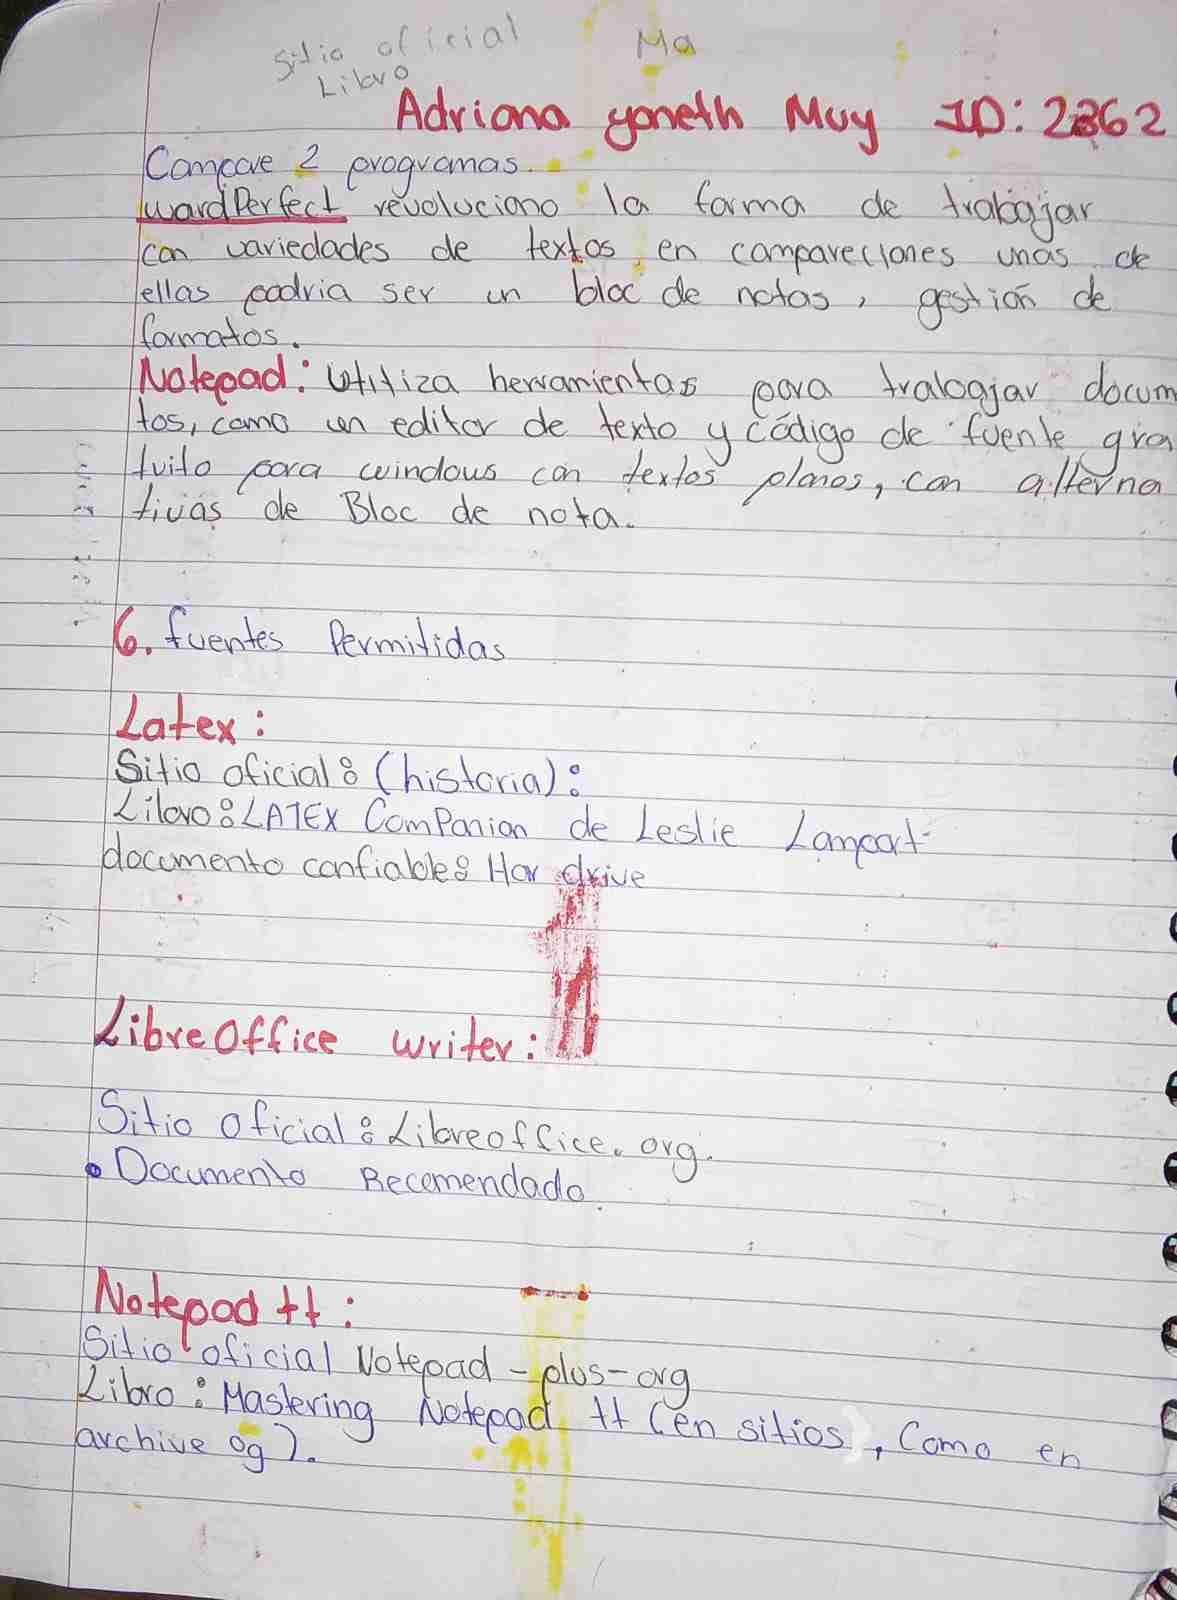 Sitio oficial Ma
Libro
Adriana yoneth Muy ID: 2362
Compare 2 programas.
wardPerfect revoluciono la forma de trabajar
con variedades de textos, en compareciones unas de
ellas podria ser un bloc de notas, gestión de
formatos.
Notepad: Utiliza herramientas para trabajar docum
tos, como un editor de texto y código de fuente gra
tuito para windous con textos planos, con alterna
tivas de Bloc de nota.
6. fuentes Permitidas
Latex:
Sitio oficial: (historia):
Libro: LATEX Companion de Leslie Lamport
documento confiable: Har drive
LibreOffice writer:
Sitio oficial: Libreoffice.org.
• Documento Recomendado
Notepad ++:
Sitio oficial Notepad-plus-org
Libro: Mastering Notepad ++ (en sitios, Como en
archive og).